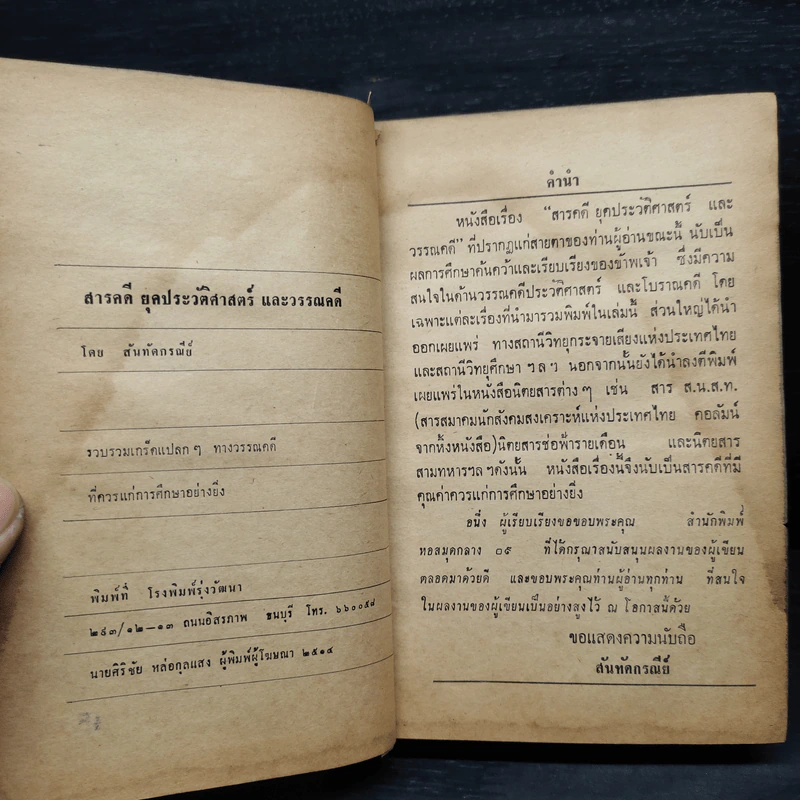 สารคดี ยุคประวัติศาสตร์ และวรรณคดี
โดย สันทัดกรณีย์
รวบรวมเกร็ดแปลกๆ ทางวรรณคดี
ที่ควรแก่การศึกษาอย่างยิ่ง
พิมพ์ที่ โรงพิมพ์รุ่งวัฒนา
๒๘๓/๑๒–๑๓ ถนนอิสรภาพ ธนบุรี โทร. ๖๖๐๐๕๘
นายศิริชัย หล่อกุลแสง ผู้พิมพ์ผู้โฆษณา ๒๕๑๔
คำนำ
หนังสือเรื่อง "สารคดี ยุคประวัติศาสตร์ และ
วรรณคดี" ที่ปรากฏแก่สายตาของท่านผู้อ่านขณะนี้ นับเป็น
ผลการศึกษาค้นคว้าและเรียบเรียงของข้าพเจ้า ซึ่งมีความ
สนใจในด้านวรรณคดีประวัติศาสตร์ และโบราณคดี โดย
เฉพาะแต่ละเรื่องที่นำมารวมพิมพ์ในเล่มนี้ ส่วนใหญ่ได้นำ
ออกเผยแพร่ ทางสถานีวิทยุกระจายเสียงแห่งประเทศไทย
และสถานีวิทยุศึกษา ฯลฯ นอกจากนั้นยังได้นำลงตีพิมพ์
เผยแพร่ในหนังสือนิตยสารต่างๆ เช่น สาร ส.น.ส.ท.
(สารสมาคมนักสังคมสงเคราะห์แห่งประเทศไทย คอลัมน์
จากหิ้งหนังสือ) นิตยสารช่อฟ้ารายเดือน และนิตยสาร
สามทหารฯลฯดังนั้น หนังสือเรื่องนี้จึงนับเป็นสารคดีที่มี
คุณค่าควรแก่การศึกษาอย่างยิ่ง
อนึ่ง ผู้เรียบเรียงขอขอบพระคุณ สำนักพิมพ์
หอสมุดกลาง ๐๙ ที่ได้กรุณาสนับสนุนผลงานของผู้เขียน
ตลอดมาด้วยดี และขอบพระคุณท่านผู้อ่านทุกท่าน ที่สนใจ
ในผลงานของผู้เขียนเป็นอย่างสูงไว้ ณ โอกาสนี้ด้วย
ขอแสดงความนับถือ
สันทัดกรณีย์